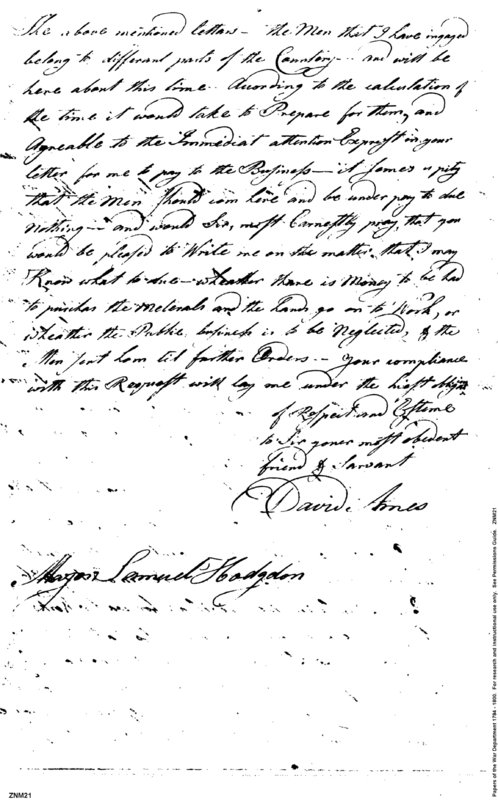 The above mentioned letters - the Men that I have ingaged
belong to differant parts of the Countery - and will be
here about this time Acording to the calculation of
the time it would take to Prepare for them, and
Agreable to the Immediat attention Exprest in your
letter for me to pay to the Business - it semes a pity
that the Men should com here and be under pay to due
nothing - and would Sir, most Earnestly pray, that you
would be pleased to Write me on the matter that I may
Know what to due - wheather thare is Money to be had
to purchas the Meterals and the hands go on to Work, or
wheather the Publick business is to be Neglected, & the
Men sent hom til further Orders - your compliance
with this Request will lay me under the hiest
of Respect and Esteme
to Sir youer most obedent
friend & Sarvant
David Ames
Major Samuel Hodgdon
ZNM21
Papers of the War Department 1784 - 1800. For research and instructional use only. See Permissions Guide. ZNM21